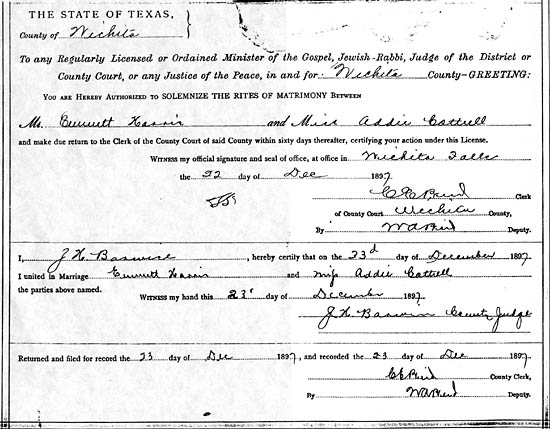 THE STATE OF TEXAS,
County of Wichita
To any Regularly Licensed or Ordained Minister of the Gospel, Jewish-Rabbi, Judge of the District or
County Court, or any Justice of the Peace, in and for Wichita County—GREETING:
YOU ARE HEREBY AUTHORIZED TO SOLEMNIZE THE RITES OF MATRIMONY BETWEEN
Mr. Emmett Harris and Miss Addie Cottrell
and make due return to the Clerk of the County Court of said County within sixty days thereafter, certifying your action under this License.
WITNESS my official signature and seal of office, at office in Wichita Falls
the 22 day of Dec 1897
Clerk
of County Court Wichita County,
By W A Reid Deputy.
I, J. H. Barwise, hereby certify that on the 23d day of December 1897
I united in Marriage Emmett Harris and Miss Addie Cottrell
the parties above named.
WITNESS my hand this 23d day of December 1897
J. H. Barwise County Judge
Returned and filed for record the 23 day of Dec 1897, and recorded the 23 day of Dec 1897.
County Clerk,
By W A Reid Deputy.